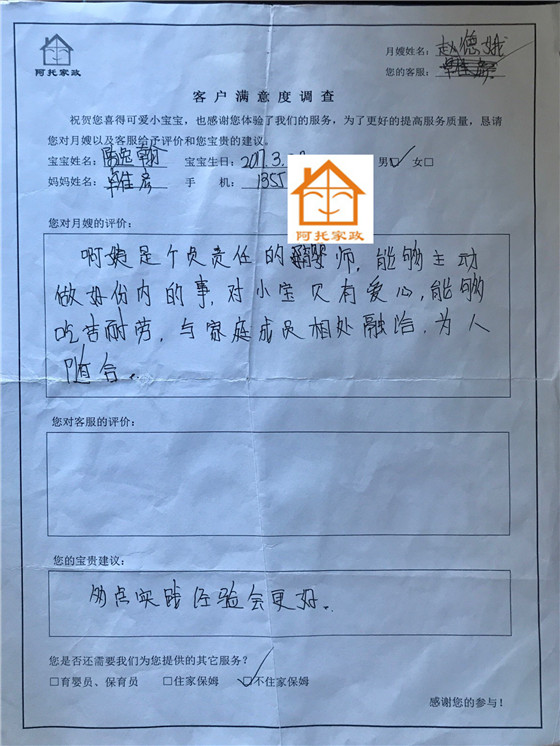 阿托家政
月嫂姓名：赵德娥
您的客服：
客户满意度调查
祝贺您喜得可爱小宝宝，也感谢您体验了我们的服务，为了更好的提高服务质量，恳请
您对月嫂以及客服给予评价和您宝贵的建议。
宝宝姓名： 宝宝生日：2017.3. 男☑ 女□
妈妈姓名： 手 机：1355
阿托家政
您对月嫂的评价：
啊姨是个负责任的 师，能够主动
做好份内的事，对小宝贝有爱心，能够
吃苦耐劳，与家庭成员相处融洽．为人
随合．
您对客服的评价：
您的宝贵建议：
多点实践经验会更好．
您是否还需要我们为您提供的其它服务？
□育婴员、保育员 □住家保姆 ☑不住家保姆
感谢您的参与！